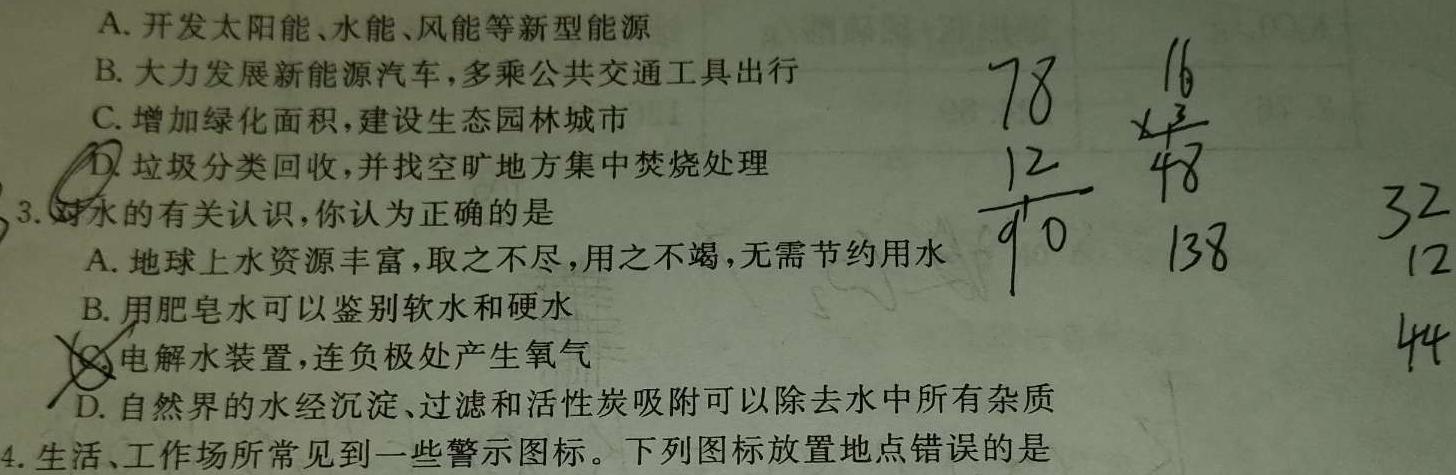 A. 开发太阳能、水能、风能等新型能源
B. 大力发展新能源汽车,多乘公共交通工具出行
C. 增加绿化面积,建设生态园林城市
D. 垃圾分类回收,并找空旷地方集中焚烧处理
3. 对水的有关认识,你认为正确的是
A. 地球上水资源丰富,取之不尽,用之不竭,无需节约用水
B. 用肥皂水可以鉴别软水和硬水
C. 电解水装置,连负极处产生氧气
D. 自然界的水经沉淀、过滤和活性炭吸附可以除去水中所有杂质
4. 生活、工作场所常见到一些警示图标。下列图标放置地点错误的是
78
12
90
16
×3
48
138
32
12
44